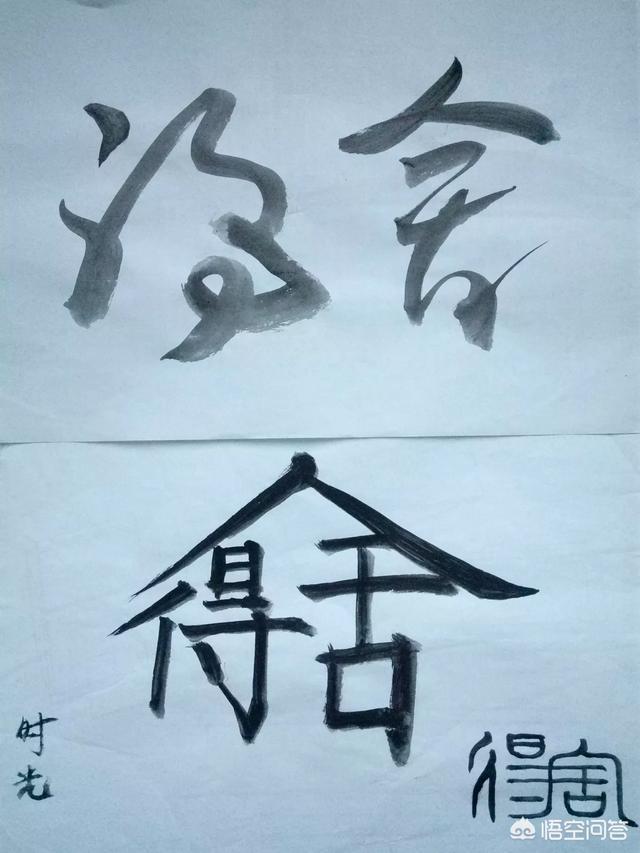 舍得
舍得
时光
舍得
悟空问答